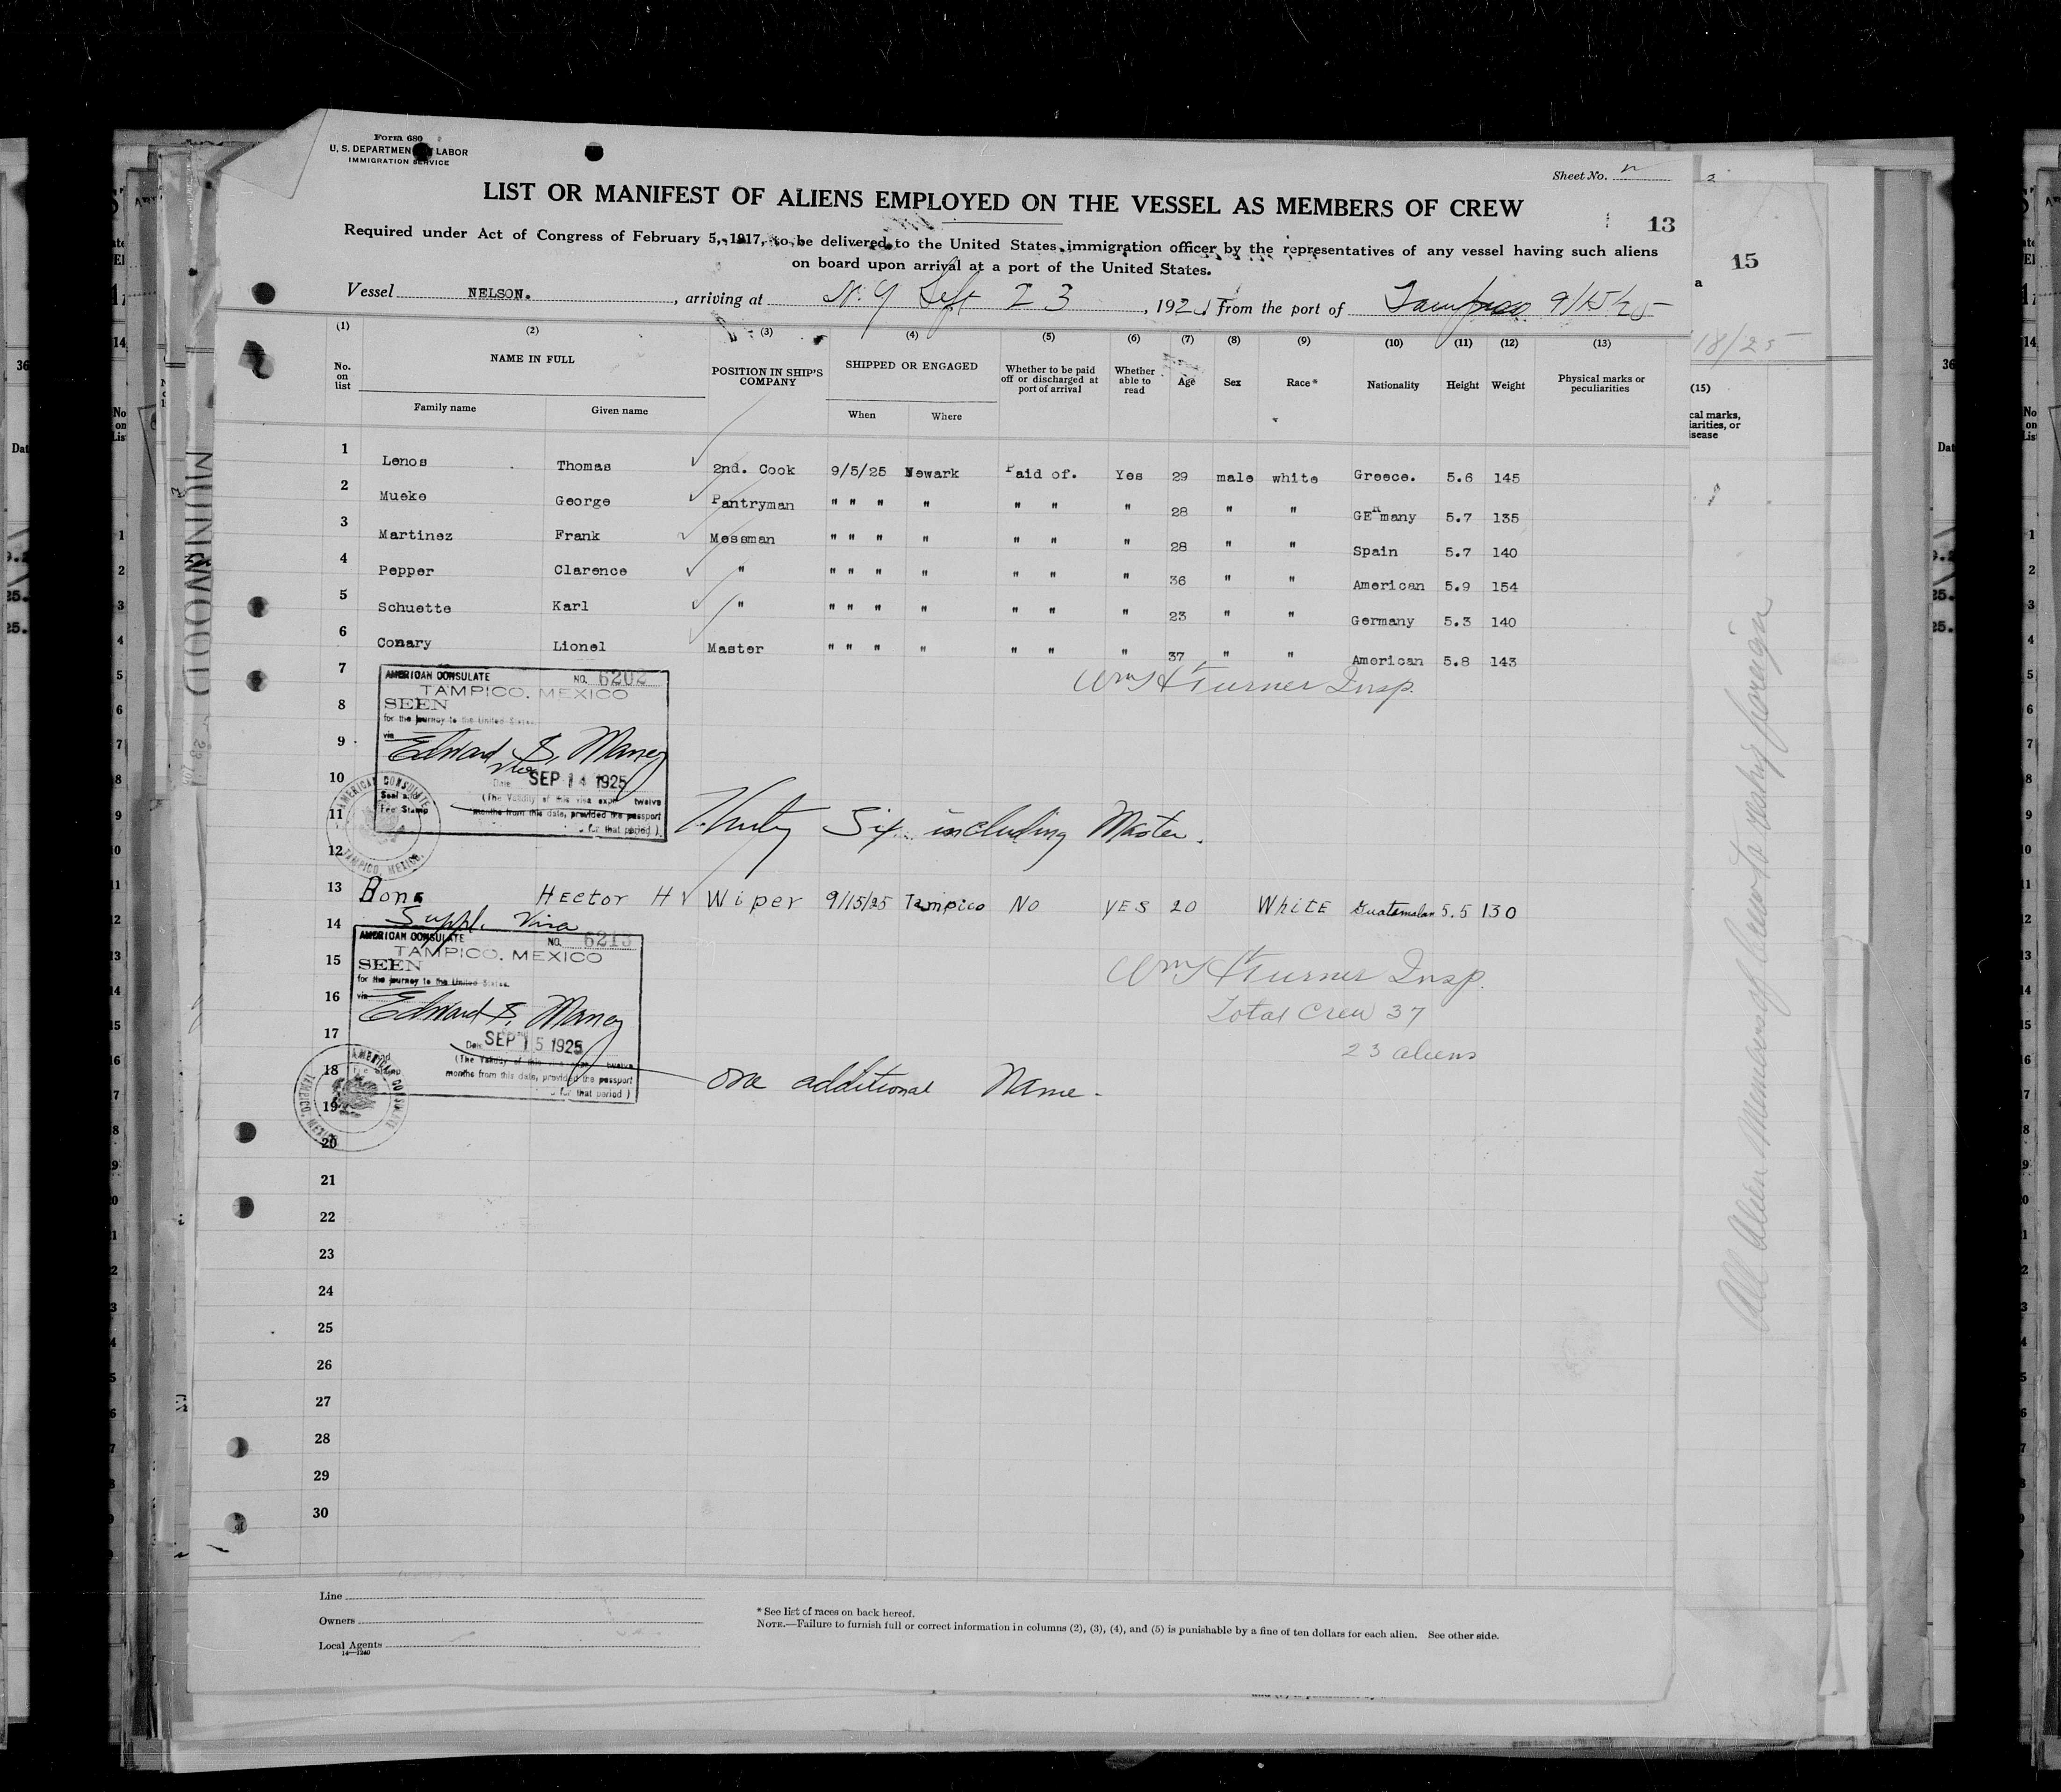 Form 680
U. S. DEPARTMENT LABOR
IMMIGRATION SERVICE
Sheet No.
LIST OR MANIFEST OF ALIENS EMPLOYED ON THE VESSEL AS MEMBERS OF CREW
13
Required under Act of Congress of February 5, 1917, to be delivered to the United States immigration officer by the representatives of any vessel having such aliens
on board upon arrival at a port of the United States.
15
Vessel NELSON. , arriving at N.Y Sept 23 , 192 from the port of Tampico 9/15/25
18/25
(1) (2) (3) (4) (5) (6) (7) (8) (9) (10) (11) (12) (13)
No. on list NAME IN FULL POSITION IN SHIP'S COMPANY SHIPPED OR ENGAGED Whether to be paid off or discharged at port of arrival Whether able to read Age Sex Race* Nationality Height Weight Physical marks or peculiarities
Family name Given name When Where
(15)
cal marks,
iarities, or
isease
1 Lenos Thomas 2nd. Cook 9/5/25 Newark Paid of. Yes 29 male white Greece. 5.6 145
2 Mueke George Pantryman " " " " " " " 28 " " GERmany 5.7 135
3 Martinez Frank Messman " " " " " " " 28 " " Spain 5.7 140
4 Pepper Clarence " " " " " " " " 36 " " American 5.9 154
5 Schuette Karl " " " " " " " " 23 " " Germany 5.3 140
6 Conary Lionel Master " " " " " " " 37 " " American 5.8 143
7
Wm H Turner Insp.
AMERICAN CONSULATE NO. 6202
TAMPICO, MEXICO
8
SEEN
for the journey to the United States.
via
9
Edward S. Maney
10
Date SEP 14 1925
(The Validity of this visa expires twelve
months from this date, provided the passport
for that period)
Seal and
Fee Stamp
AMERICAN CONSULATE
TAMPICO, MEXICO.
11
Thirty Six including Master.
12
13 Bone Hector H Wiper 9/15/25 Tampico NO YES 20 WHITE Guatemalan 5.5 130
Suppl. Visa
14
AMERICAN CONSULATE NO. 6213
TAMPICO, MEXICO
15
SEEN
for the journey to the United States.
via
Wm H Turner Insp.
16
Edward S. Maney
Total Crew 37
17
Date SEP 15 1925
23 aliens
(The Validity of this visa expires twelve
months from this date, provided the passport
for that period)
AMERICAN CONSULATE
TAMPICO, MEXICO
18
one additional Name.
19
20
21
22
23
24
25
26
27
28
29
30
Line
Owners
Local Agents
14—1240
* See list of races on back hereof.
NOTE.—Failure to furnish full or correct information in columns (2), (3), (4), and (5) is punishable by a fine of ten dollars for each alien. See other side.
MUNWOOD
All Alien Members of Crew to reship foreign